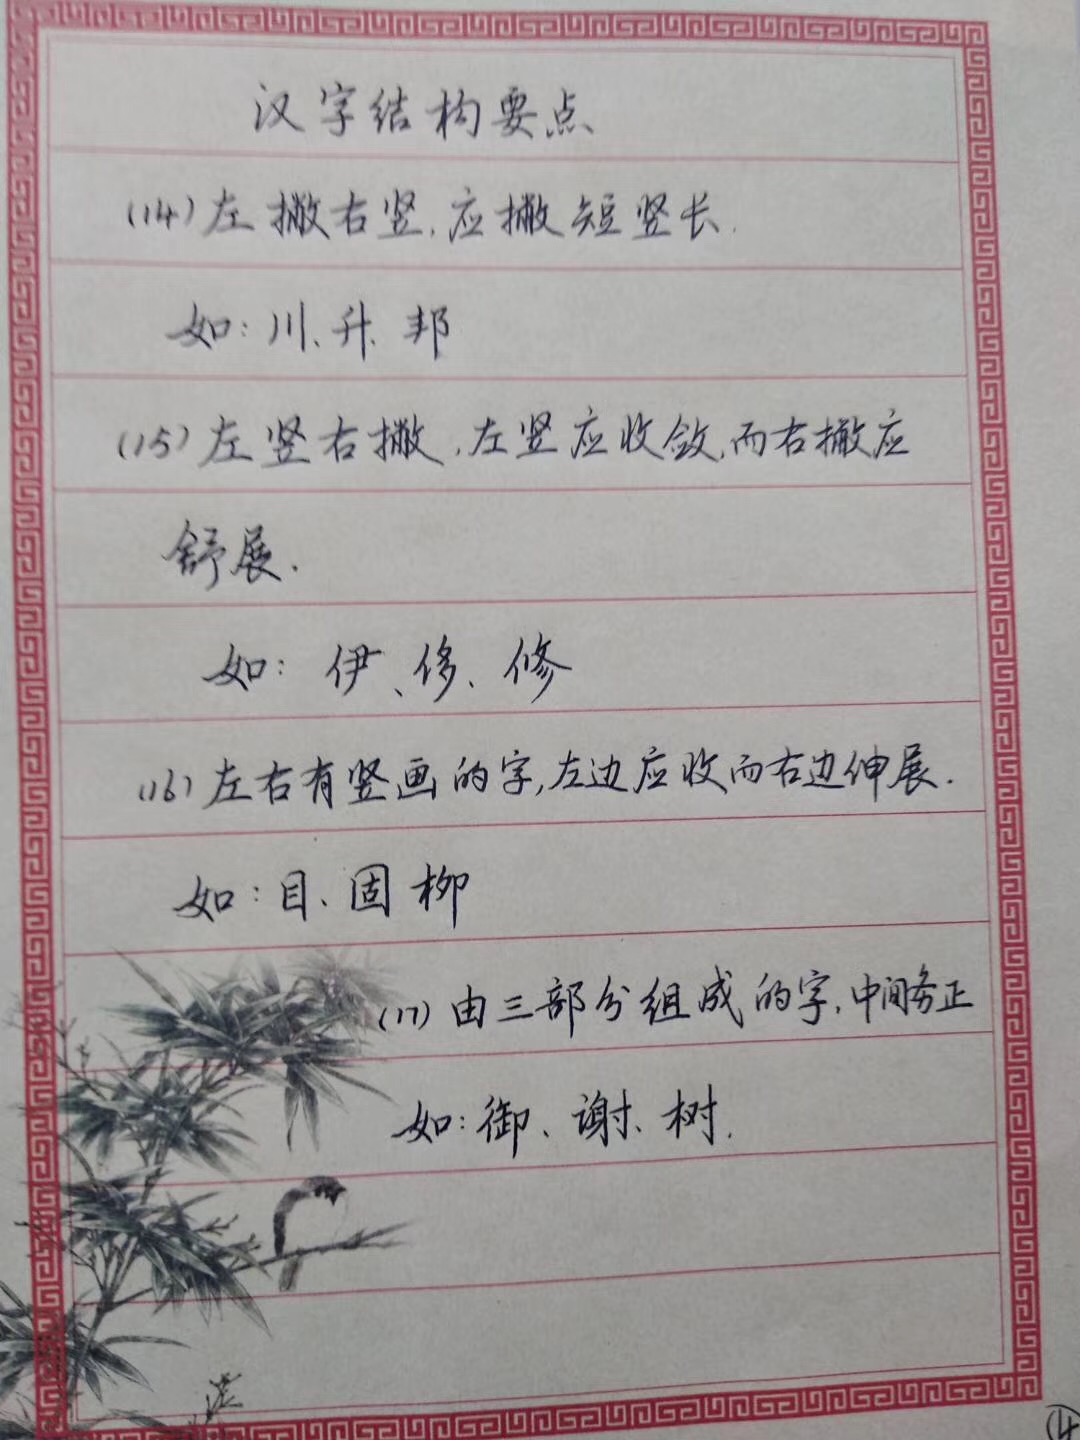 汉字结构要点
(14)左撇右竖,应撇短竖长.
如:川、升、邦
(15)左竖右撇,左竖应收敛,而右撇应
舒展.
如:伊、侈、修
(16)左右有竖画的字,左边应收而右边伸展.
如:目、固柳
(17)由三部分组成的字,中间务正
如:御、谢、树.
④